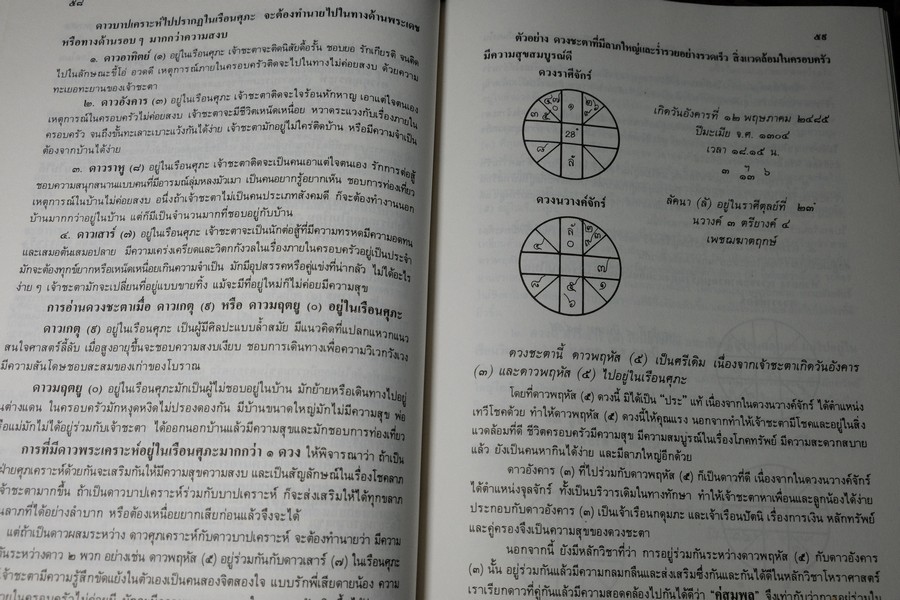 ๕๘
ดาวบาปเคราะห์ไปปรากฏในเรือนศุภะ จะต้องทำนายไปในทางด้านพระเดช
หรือทางด้านรอบ ๆ มากกว่าความสงบ
๑. ดาวอาทิตย์ (๑) อยู่ในเรือนศุภะ เจ้าชะตาจะติดนิสัยดื้อรั้น ชอบยอ รักเกียรติ จนติด
ไปในลักษณะขี้โอ่ อวดดี เหตุการณ์ภายในครอบครัวติดจะไปในทางไม่ค่อยสงบ ด้วยความ
ทะเยอทะยานของเจ้าชะตา
๒. ดาวอังคาร (๓) อยู่ในเรือนศุภะ เจ้าชะตาติดจะใจร้อนหักหาญ เอาแต่ใจตนเอง
เหตุการณ์ในครอบครัวไม่ค่อยสงบ เจ้าชะตาจะมีชีวิตเหน็ดเหนื่อย หวาดระแวงกับเรื่องภายใน
ครอบครัว จนถึงขั้นทะเลาะเบาะแว้งกันได้ง่าย เจ้าชะตามักอยู่ไม่ใคร่ติดบ้าน หรือมีความจำเป็น
ต้องจากบ้านได้ง่าย
๓. ดาวราหู (๘) อยู่ในเรือนศุภะ เจ้าชะตาติดจะเป็นคนเอาแต่ใจตนเอง รักการต่อสู้
ชอบความสนุกสนานแบบคนที่มีอารมณ์ลุ่มหลงมัวเมา เป็นคนอยากรู้อยากเห็น ชอบการท่องเที่ยว
เหตุการณ์ในบ้านไม่ค่อยสงบ อนึ่งถ้าเจ้าชะตาไม่เป็นคนประเภทสังคมดี ก็จะต้องทำงานนอก
บ้านมากกว่าอยู่ในบ้าน แต่ก็มีเป็นจำนวนมากที่ชอบอยู่กับบ้าน
๔. ดาวเสาร์ (๗) อยู่ในเรือนศุภะ เจ้าชะตาจะเป็นนักต่อสู้ที่มีความทรหดมีความอดทน
และเสมอต้นเสมอปลาย มีความเคร่งเครียดและวิตกกังวลในเรื่องภายในครอบครัวอยู่เป็นประจำ
มักจะต้องทุกข์ยากหรือเหน็ดเหนื่อยเกินความจำเป็น มักมีอุปสรรคหรือคู่แข่งที่น่ากลัว ไม่ได้อะไร
ง่าย ๆ เจ้าชะตาจะเปลี่ยนที่อยู่แบบขายทิ้ง แม้จะมีที่อยู่ใหม่ก็ไม่ค่อยมีความสุข
การอ่านดวงชะตาเมื่อ ดาวเกตุ (๙) หรือ ดาวมฤตยู (๐) อยู่ในเรือนศุภะ
ดาวเกตุ (๙) อยู่ในเรือนศุภะ เป็นผู้มีศิลปะแบบล้ำสมัย มีแนวคิดที่แปลกแหวกแนว
สนใจศาสตร์ลี้ลับ เมื่อสูงอายุขึ้นจะชอบความสงบเงียบ ชอบการเดินทางเพื่อความวิเวกวังเวง
มีความสันโดษชอบสะสมของเก่าของโบราณ
ดาวมฤตยู (๐) อยู่ในเรือนศุภะมักเป็นผู้ไม่ชอบอยู่ในบ้าน มักย้ายหรือเดินทางไปอยู่
ในต่างแดน ในครอบครัวมักหงุดหงิดไม่ปรองดองกัน มีบ้านขนาดใหญ่มักไม่มีความสุข พ่อ
หรือแม่มักไม่ได้อยู่ร่วมกับเจ้าชะตา ได้ออกนอกบ้านแล้วมีความสุขและมักชอบการท่องเที่ยว
การที่มีดาวพระเคราะห์อยู่ในเรือนศุภะมากกว่า ๑ ดวง ให้พิจารณาว่า ถ้าเป็น
ฝ่ายศุภเคราะห์ด้วยกันจะเสริมกันให้มีความสุขความสงบ และเป็นสัญลักษณ์ในเรื่องโชคลาภ
เจ้าชะตามากขึ้น ถ้าเป็นดาวบาปเคราะห์ร่วมกับบาปเคราะห์ ก็จะส่งเสริมให้ได้ทุกขลาภ
ในลาภที่ได้อย่างลำบาก หรือต้องเหนื่อยยากเสียก่อนแล้วจึงจะได้
แต่ถ้าเป็นดาวผสมระหว่าง ดาวศุภเคราะห์กับดาวบาปเคราะห์ จะต้องทำนายว่า มีความ
กันระหว่างดาว ๒ พวก อย่างเช่น ดาวพฤหัส (๕) อยู่ร่วมกันกับดาวเสาร์ (๗) ในเรือนศุภะ
เจ้าชะตามีความรู้สึกขัดแย้งในตัวเองเป็นคนสองจิตสองใจ แบบรักพี่เสียดายน้อง ความ
๕๙
ตัวอย่าง ดวงชะตาที่มีลาภใหญ่และร่ำรวยอย่างรวดเร็ว สิ่งแวดล้อมในครอบครัว
มีความสุขสมบูรณ์ดี
ดวงราศีจักร์
เกิดวันอังคารที่ ๑๒ พฤษภาคม ๒๔๘๕
ปีมะเมีย จ.ศ. ๑๓๐๔
เวลา ๑๘.๑๕ น.
ลัคนา (ลั) อยู่ในราศีตุลย์ที่ ๒๓ํ
นวางค์ ๓ ตรียางค์ ๔
เพชฌฆาตฤกษ์
ดวงนวางค์จักร์
ดวงชะตานี้ ดาวพฤหัส (๕) เป็นศรีเดิม เนื่องจากเจ้าชะตาเกิดวันอังคาร
(๓) และดาวพฤหัส (๕) ไปอยู่ในเรือนศุภะ
โดยที่ดาวพฤหัส (๕) ดวงนี้ มิได้เป็น "ประ" แท้ เนื่องจากในดวงนวางค์จักร์ ได้ตำแหน่ง
เทวีโชคด้วย ทำให้ดาวพฤหัส (๕) ดวงนี้ให้คุณแรง นอกจากทำให้เจ้าชะตามีโชคและอยู่ในสิ่ง
แวดล้อมที่ดี ชีวิตครอบครัวมีความสุข มีความสมบูรณ์ในเรื่องโภคทรัพย์ มีความสะดวกสบาย
แล้ว ยังเป็นคนหากินได้ง่าย และมีลาภใหญ่อีกด้วย
ดาวอังคาร (๓) ที่ไปร่วมกับดาวพฤหัส (๕) ก็เป็นดาวที่ดี เนื่องจากในดวงนวางค์จักร์
ได้ตำแหน่งจุลจักร์ ทั้งเป็นบริวารเดิมในทางทักษา ทำให้เจ้าชะตาหาเพื่อนและลูกน้องได้ง่าย
ประกอบกับดาวอังคาร (๓) เป็นเจ้าเรือนกดุมภะ และเจ้าเรือนปัตนิ เรื่องการเงิน หลักทรัพย์
และคู่ครองจึงเป็นความสุขของดวงชะตา
นอกจากนี้ ยังมีหลักวิชาที่ว่า การอยู่ร่วมกันระหว่างดาวพฤหัส (๕) กับดาวอังคาร
(๓) นั้น อยู่ร่วมกันแล้วมีความกลมกลืนและส่งเสริมซึ่งกันและกันได้ดีในหลักวิชาโหราศาสตร์
เราเรียกดาวที่คู่กันแล้วมีความสอดคล้องไปกันได้ดีว่า "คู่สมพล" จึงเท่ากับว่าการอยู่ร่วมใน